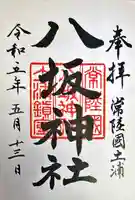 奉拝 常陸國土浦
八坂神社
令和五年五月十三日